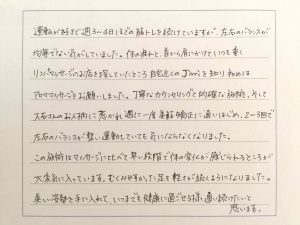 運動が好きで週3～4日ほどの筋トレを続けていますが、左右のバランスが
均等でない気がしていました。体の疲れと、首から肩にかけていつも重く
リンパマッサージのお店を探していたところ自宅近くの
アロママッサージをお願いしました。丁寧なカウンセリングと的確な施術、そして
大石さんのお人柄に惹かれ週に一度美容矯正に通いはじめ、2～3回で
左右のバランスが整い運動していても気にならなくなりました。
この施術はマッサージに比べて早い段階で体の変化が感じられるところが
大変気に入っています。むくみやすかった足も軽さが続くようになりました。
美しい姿勢を手に入れて、いつまでも健康に過ごせる様通い続けたいと
思います。